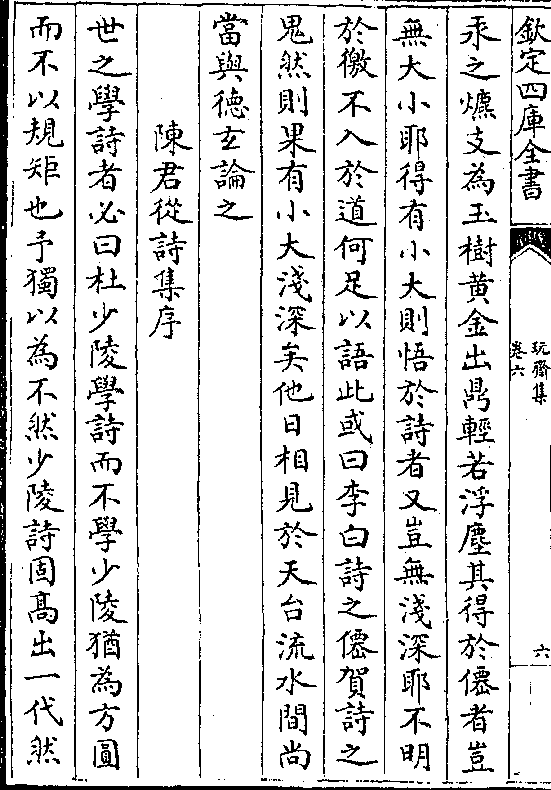 欽定四庫全書
玩齋集
卷六
六
汞之爊支為玉樹黄金出鼎輕若浮塵其得於僊者豈
無大小耶得有小大則悟於詩者又豈無淺深耶不明
於徼不入於道何足以語此或曰李白詩之僊賀詩之
鬼然則果有小大淺深矣他日相見於天台流水間尚
當與德玄論之
陳君從詩集序
世之學詩者必曰杜少陵學詩而不學少陵猶為方圓
而不以規矩也予獨以為不然少陵詩固髙出一代然